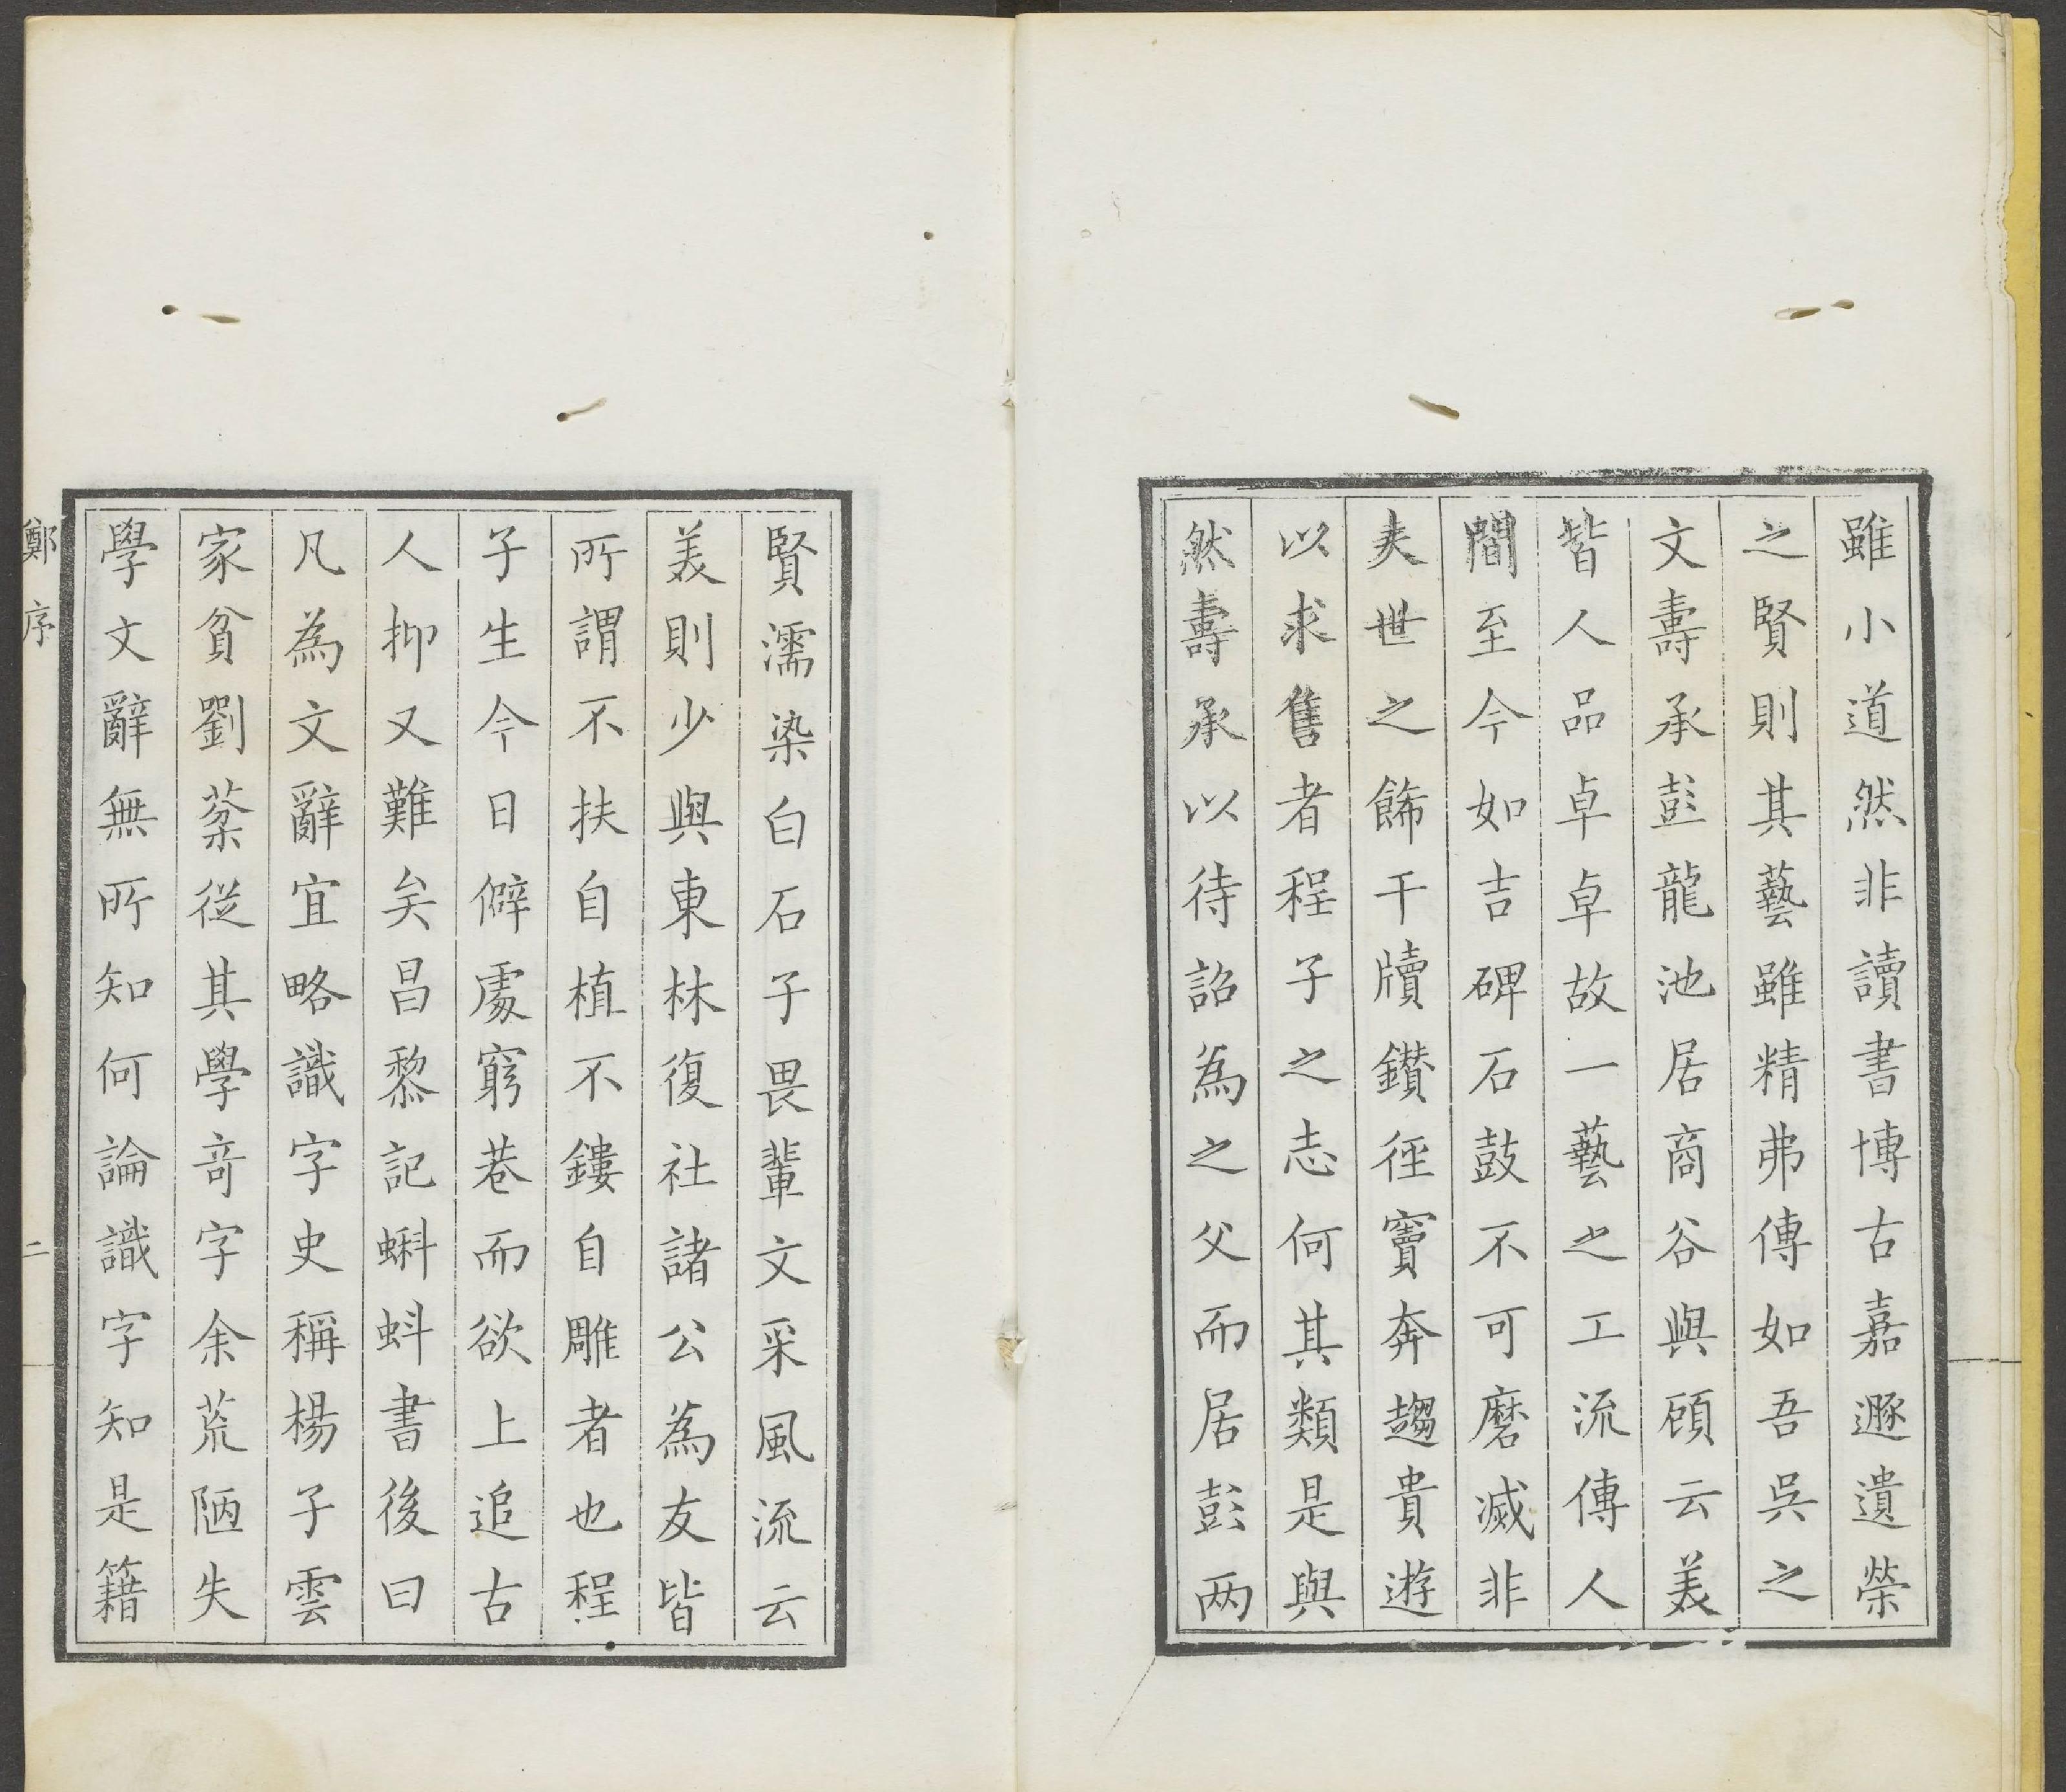 雖小道然非讀書博古嘉遯遺榮
之賢則其藝雖精弗傳如吾吳之
文壽承彭龍池居商谷與顧云美
皆人品卓卓故一藝之工流傳人
間至今如吉碑石鼓不可磨滅非
夫世之餙干牘鑽徑竇奔趨貴遊
以求售者程子之志何其類是與
然壽承以待詔為之父而居彭两
賢濡染白石子畏輩文采風流云
美則少與東林復社諸公為友皆
所謂不扶自植不鏤自雕者也程
子生今日僻處窮巷而欲上追古
人抑又難矣昌黎記蝌蚪書後曰
凡為文辭宜略識字史稱楊子雲
家貧劉棻從其學竒字余荒陋失
學文辭無所知何論識字知是籍
鄭序
二